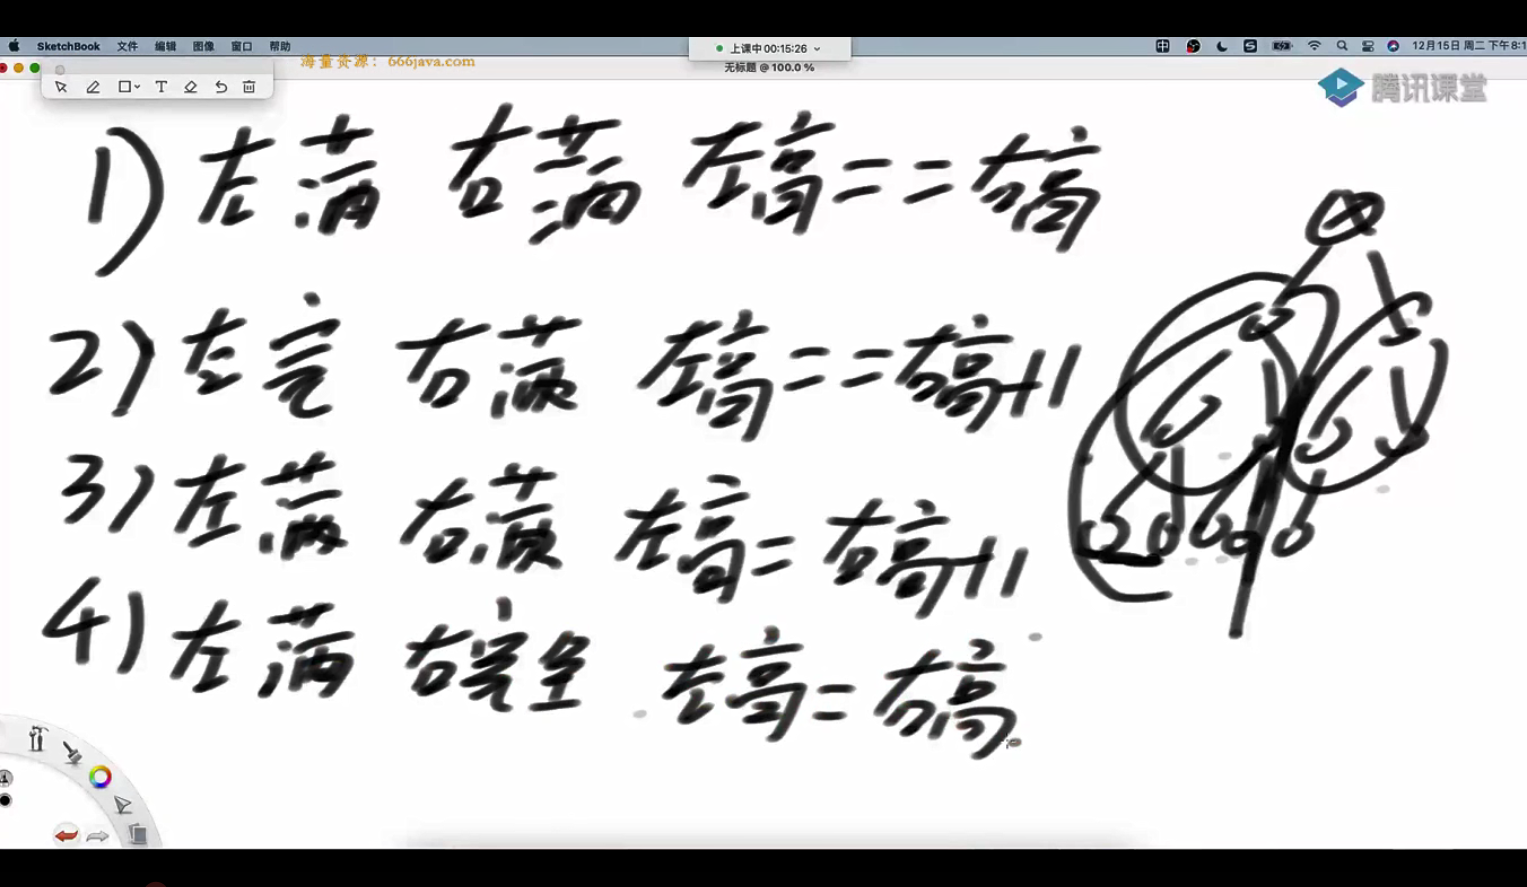 SketchBook 文件 编辑 图像 窗口 帮助
上课中 00:15:26
中
12月15日 周二 下午8:1
海量资源：666java.com
无标题 @ 100.0 %
T
腾讯课堂
1) 左满 右满 左高==右高
2) 左完 右满 左高==右高+1
3) 左满 右满 左高=右高+1
4) 左满 右完全 左高=右高